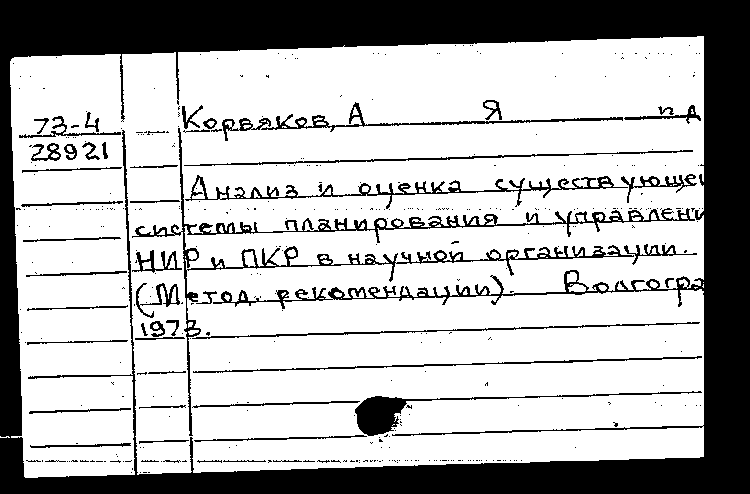 73-4 Корвяков, А Я п д
28921
Анализ и оценка существующе
системы планирования и управлени
НИР и ПКР в научной организации.
(Метод. рекомендации). Волгогра
1973.